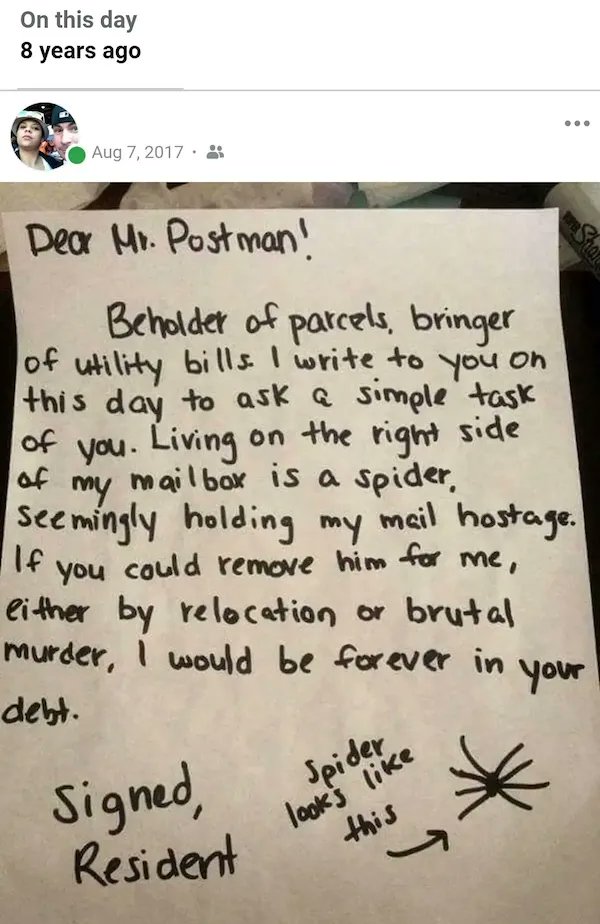 On this day
8 years ago
Aug 7, 2017
Dear Mr. Postman!
Beholder of parcels, bringer
of utility bills. I write to you on
this day to ask a simple task
of you. Living on the right side
of my mailbox is a spider,
seemingly holding my mail hostage.
If you could remove him for me,
either by relocation or brutal
murder, I would be forever in your
debt.
Signed,
Resident
Spider
looks like
this